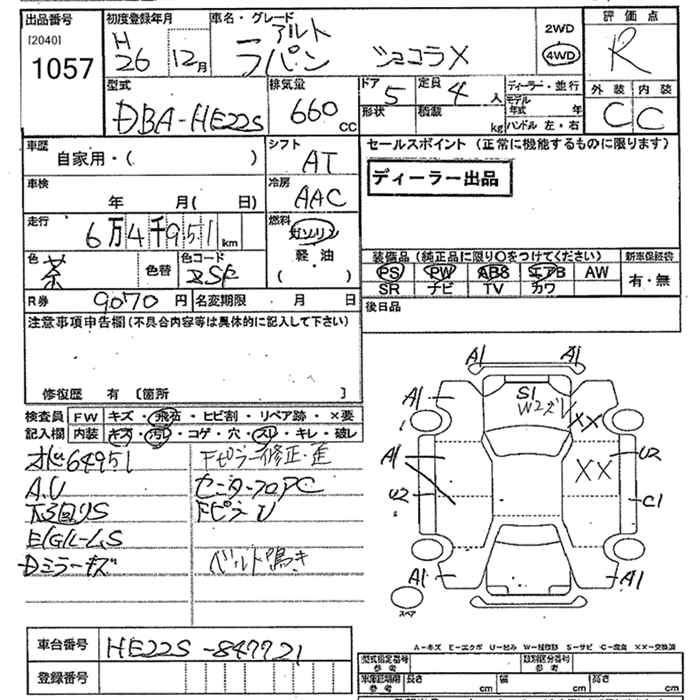 出品番号 初度登録年月 車名・グレード 2WD 評価点
[2040] H アルト
1057 26 12月 ラパン ショコラX 4WD R
型式 排気量 ドア 5 定員 4人 ディーラー・並行 外装 内装
DBA-HE22S 660 CC 形状 積載 kg モデル年式 年 C C
ハンドル 左・右
車歴 シフト セールスポイント(正常に機能するものに限ります)
自家用・( ) AT
車検 冷房 ディーラー出品
年 月( 日) AAC
走行 燃料
6万4千951km ガソリン
色 色コード 軽油 装備品(純正品に限り○をつけてください) 新車保証書
茶 色替 ZSF ( ) PS PW ABS エアB AW 有・無
R券 9070円 名変期限 月 日 SR ナビ TV カワ
注意事項申告欄(不具合内容等は具体的に記入して下さい) 後日品
修復歴 有 [箇所 ]
検査員 FW キズ・飛石・ヒビ割・リペア跡・×要
記入欄 内装 キズ・汚レ・コゲ・穴・スレ・キレ・破レ
64951 Fピラー修正・歪
A.U センターフロアC
下回りS FピラーU
E/GルームS
Dミラーキズ ベルト鳴き
A1 A1
A1 S1 A1
W2ズレ XX
A1 U2
XX
U2 C1
A1 A1
スペア
A-キズ E-エクボ U-凹み W-補修跡 S-サビ C-腐食 XX-交換済
車台番号 HE22S-847721
登録番号
型式指定番号 参考 類別区分番号 参考
車庫証明用 参考 長さ cm 幅 cm 高さ cm